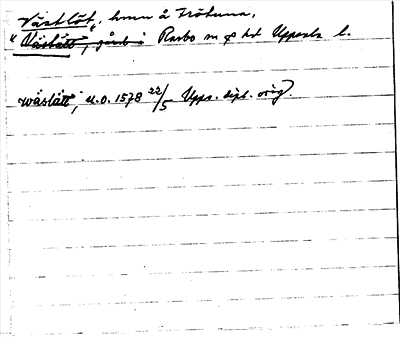 Västlöt, hmn å Trötuna,
"Västätt", gård i Rasbo sn o hd Uppsala l.
"wäslätt", u.o. 1578 22/5 Upps. dipl. orig.